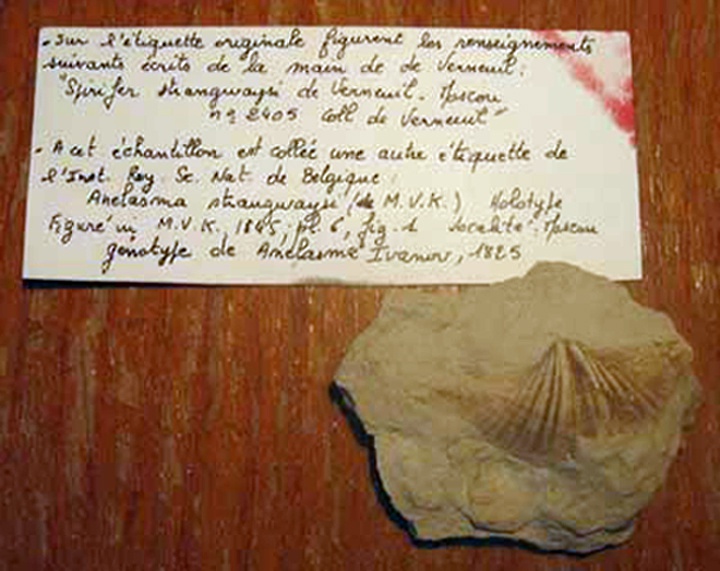 - Sur l'étiquette originale figurent les renseignements
suivants écrits de la main de de Verneuil:
"Spirifer strangwaysi de Verneuil. Moscou
nº 2405 Coll de Verneuil"
- A cet échantillon est collée une autre étiquette de
l'Inst. Roy. Sc. Nat. de Belgique:
Anelasma strangwaysi (de M.V.K.) Holotype
Figuré in M.V.K., 1845, pl. 6, fig. 1 Localité: Moscou
génotype de Anelasme Ivanov, 1925